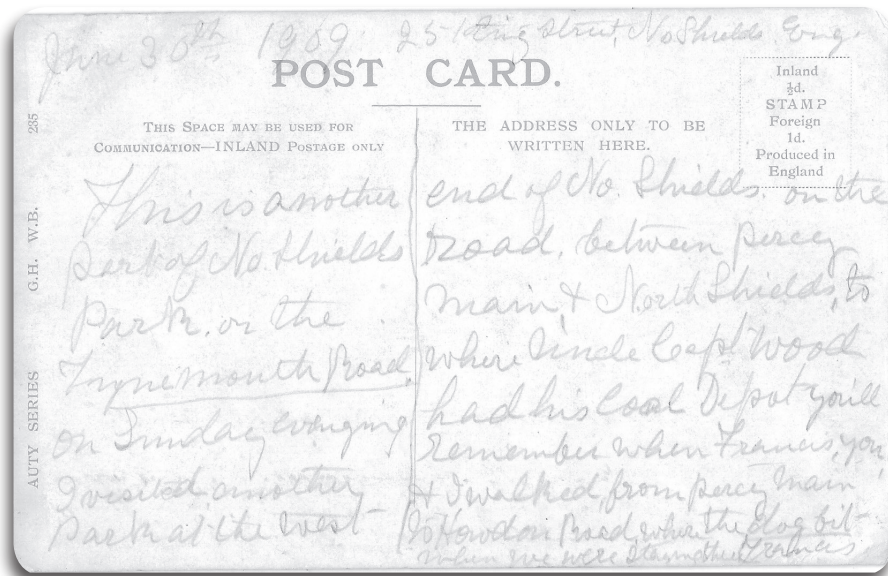 June 30th 1909. 25 King Street, No Shields. Eng.
POST CARD.
Inland
½d.
STAMP
Foreign
1d.
Produced in
England
THIS SPACE MAY BE USED FOR
COMMUNICATION—INLAND POSTAGE ONLY
THE ADDRESS ONLY TO BE
WRITTEN HERE.
AUTY SERIES G.H. W.B. 235
This is another
part of No. Shields
Park, on the
Tynemouth Road.
on Sunday evenging
I visited another
Park at the West
end of No. Shields. on the
Road, between percy
main & North Shields, to
where Uncle Capt Wood
had his Coal Depot you'll
remember when Francis, you
& I walked, from percy main
to Howdon Road, where the dog bit
when we were staying there Francis